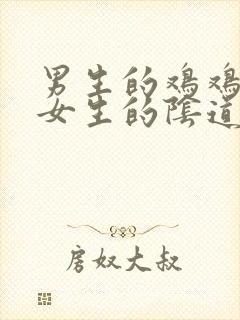 男生的鸡鸡
女生的陰道
房奴大叔